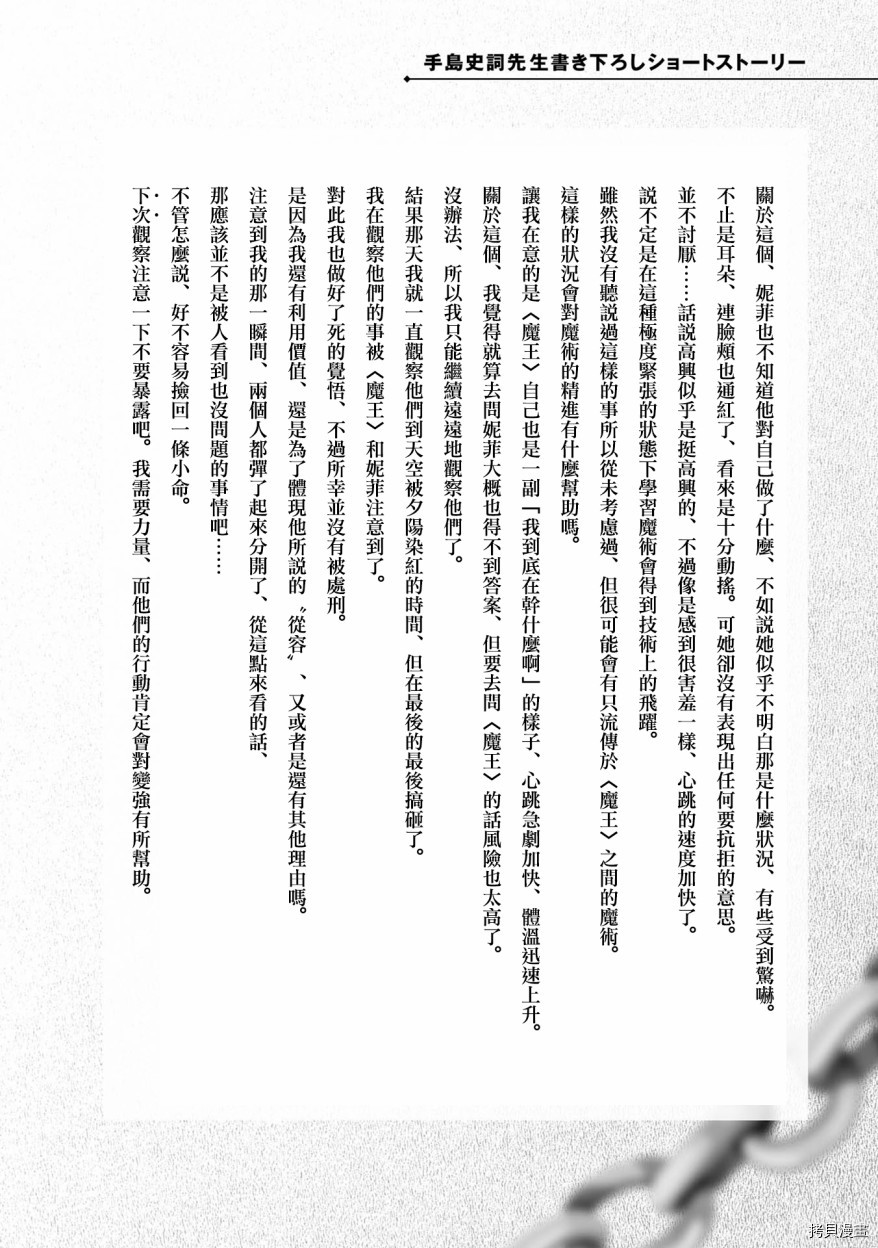 手島史詞先生書き下ろしショートストーリー
關於這個、妮菲也不知道他對自己做了什麼、不如說她似乎不明白那是什麼狀況、有些受到驚嚇。
不止是耳朵、連臉頰也通紅了、看來是十分動搖。可她卻沒有表現出任何要抗拒的意思。
並不討厭……話說高興似乎是挺高興的、不過像是感到很害羞一樣、心跳的速度加快了。
說不定是在這種極度緊張的狀態下學習魔術會得到技術上的飛躍。
雖然我沒有聽說過這樣的事所以從未考慮過、但很可能會有只流傳於〈魔王〉之間的魔術。
這樣的狀況會對魔術的精進有什麼幫助嗎。
讓我在意的是〈魔王〉自己也是一副「我到底在幹什麼啊」的樣子、心跳急劇加快、體溫迅速上升。
關於這個、我覺得就算去問妮菲大概也得不到答案、但要去問〈魔王〉的話風險也太高了。
沒辦法、所以我只能繼續遠遠地觀察他們了。
結果那天我就一直觀察他們到天空被夕陽染紅的時間、但在最後的最後搞砸了。
我在觀察他們的事被〈魔王〉和妮菲注意到了。
對此我也做好了死的覺悟、不過所幸並沒有被處刑。
是因為我還有利用價值、還是為了體現他所說的〝從容〞、又或者是還有其他理由嗎。
注意到我的那一瞬間、兩個人都彈了起來分開了、從這點來看的話、
那應該並不是被人看到也沒問題的事情吧……
不管怎麼說、好不容易撿回一條小命。
下次觀察注意一下不要暴露吧。我需要力量、而他們的行動肯定會對變強有所幫助。
拷貝漫畫